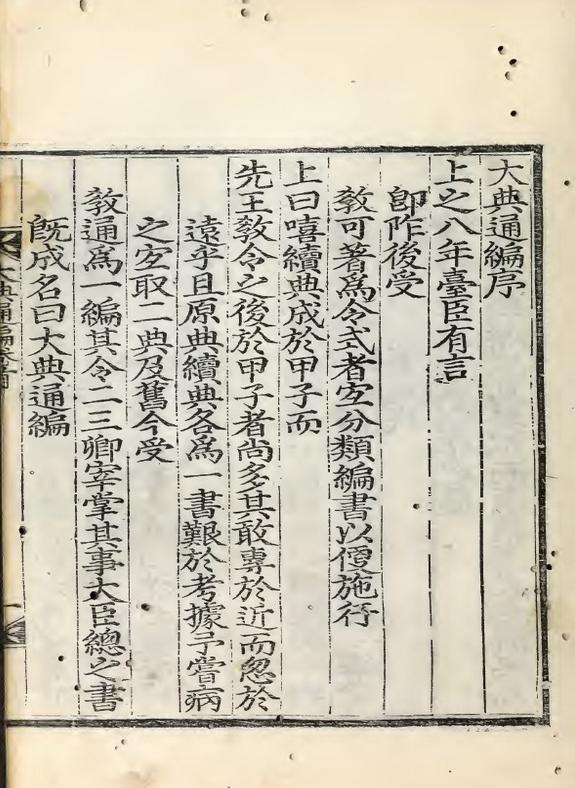 大典通編序
上之八年臺臣有言
卽阼後受
敎可著爲令式者宜分類編書以便施行
上曰嘻續典成於甲子而
先王敎令之後於甲子者尙多其敢專於近而忽於
遠乎且原典續典各爲一書艱於考據予嘗病
之宜取二典及舊今受
敎通爲一編其令二三卿宰掌其事大臣總之書
旣成名曰大典通編
大典通編